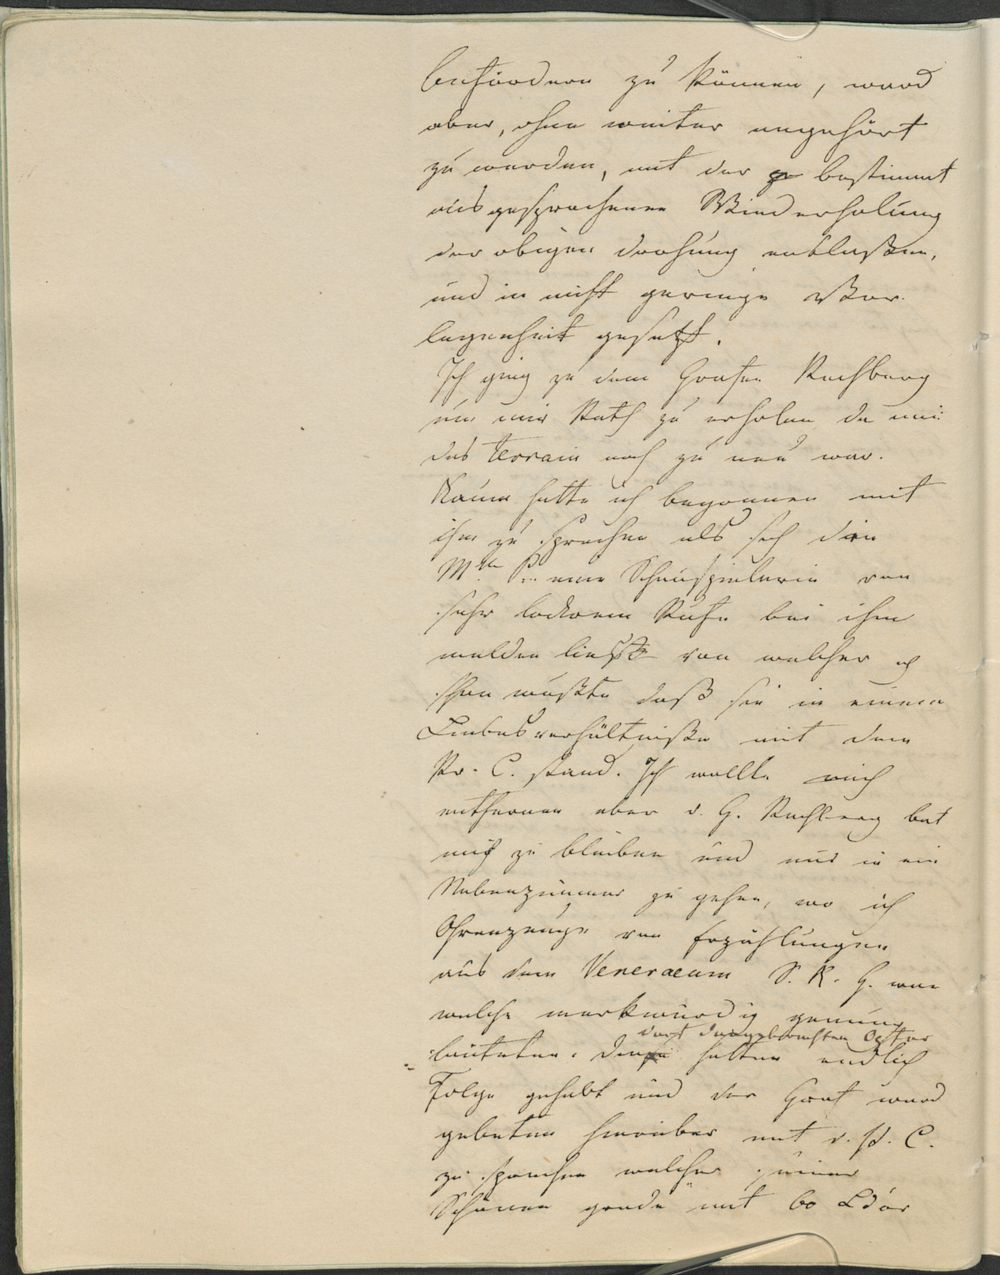 befördern zu können, ward
aber, ohne weiter angehört
zu werden, mit der bestimmt
ausgesprochenen Wiederholung
der obigen Drohung entlaßen,
und in nicht geringe Ver-
legenheit gesetzt.
Ich ging zu dem Grafen Rechberg
um mir Rath zu erholen da mir
das terrain noch zu neu war.
Kaum hatte ich begonnen mit
ihm zu sprechen als sich die
Mlle P... eine Schauspielerin von
sehr lockerem Rufe bei ihm
melden ließ von welcher ich
schon wußte daß sie in einem
Liebesverhältniße mit dem
Pr. C. stand. Ich wollte mich
entfernen aber d. G. Rechberg bat
mich zu bleiben und nur in ein
Nebenzimmer zu gehen, wo ich
Ohrenzeuge von Erzählungen
aus dem Veneraeum S. K. H. war
welche merkwürdig genung
dort dargebrachten Opfer
lauteten. Diese hatten endlich
Folge gehabt und der Graf ward
gebeten hierüber mit d. P. C.
zu sprechen welcher seiner
Schönen grade mit 60 Ldór